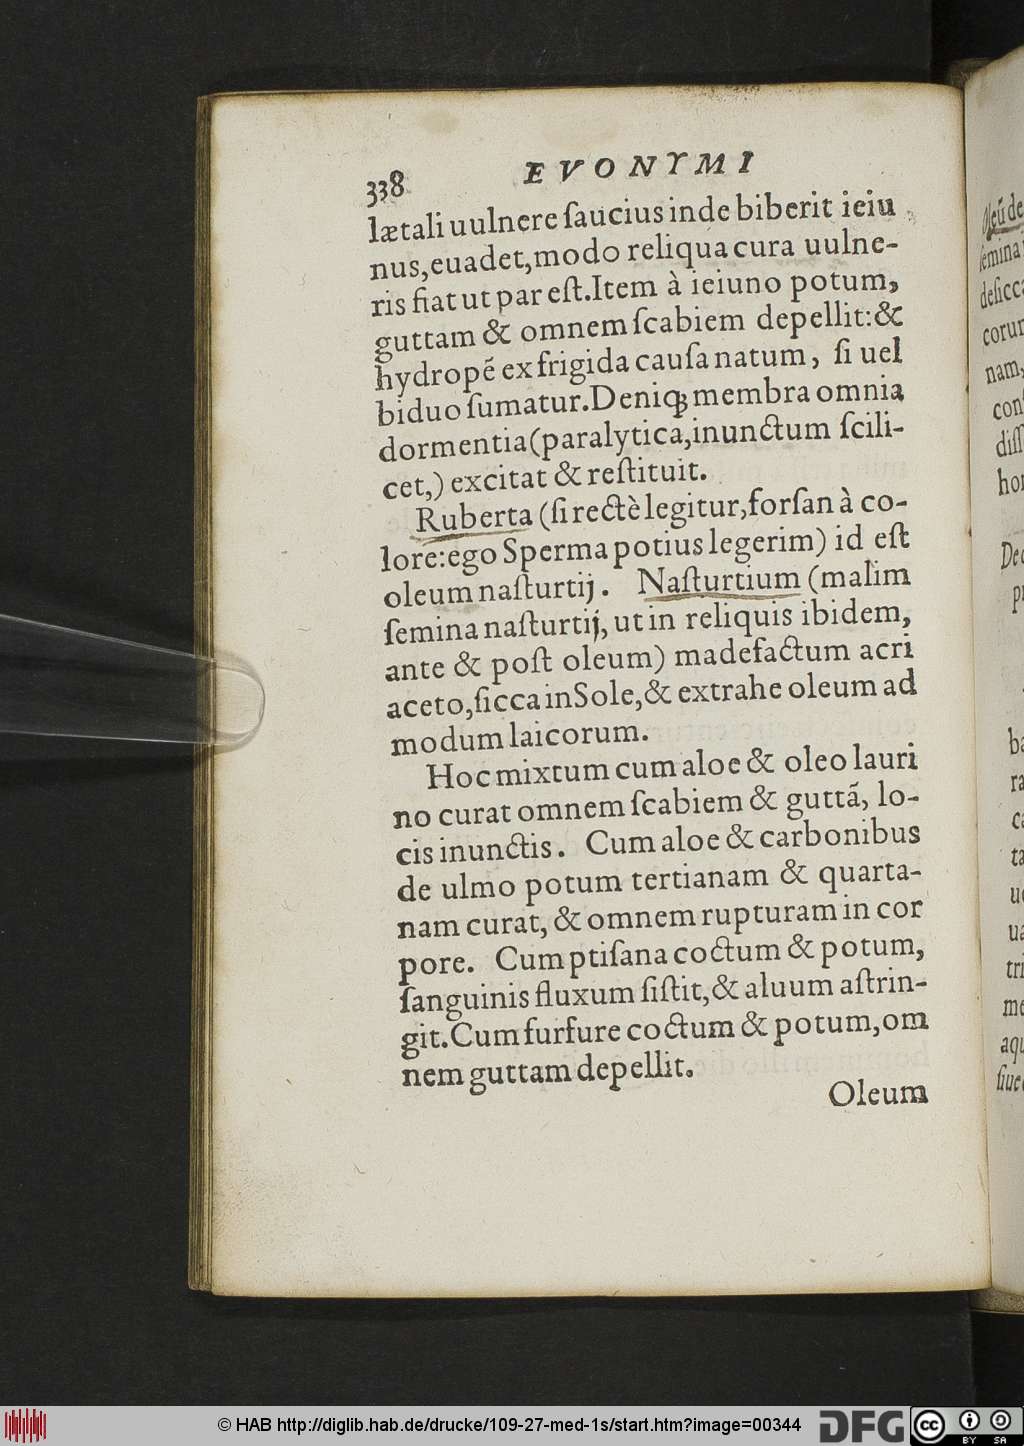 338 EVONYMI
lætali uulnere ſaucius inde biberit ieiu
nus, euadet, modo reliqua cura uulne-
ris fiat ut par eſt. Item à ieiuno potum,
guttam & omnem ſcabiem depellit: &
hydropẽ ex frigida cauſa natum, ſi uel
biduo ſumatur. Deniqꝫ membra omnia
dormentia (paralytica, inunctum ſcili-
cet,) excitat & reſtituit.
Ruberta (ſi rectè legitur, forſan à co-
lore: ego Sperma potius legerim) id eſt
oleum naſturtij. Naſturtium (malim
ſemina naſturtij, ut in reliquis ibidem,
ante & poſt oleum) madefactum acri
aceto, ſicca in Sole, & extrahe oleum ad
modum laicorum.
Hoc mixtum cum aloe & oleo lauri
no curat omnem ſcabiem & guttã, lo-
cis inunctis. Cum aloe & carbonibus
de ulmo potum tertianam & quarta-
nam curat, & omnem rupturam in cor
pore. Cum ptiſana coctum & potum,
ſanguinis fluxum ſiſtit, & aluum aſtrin-
git. Cum furfure coctum & potum, om
nem guttam depellit.
Oleum
© HAB http://diglib.hab.de/drucke/109-27-med-1s/start.htm?image=00344
DFG
cc
BY SA